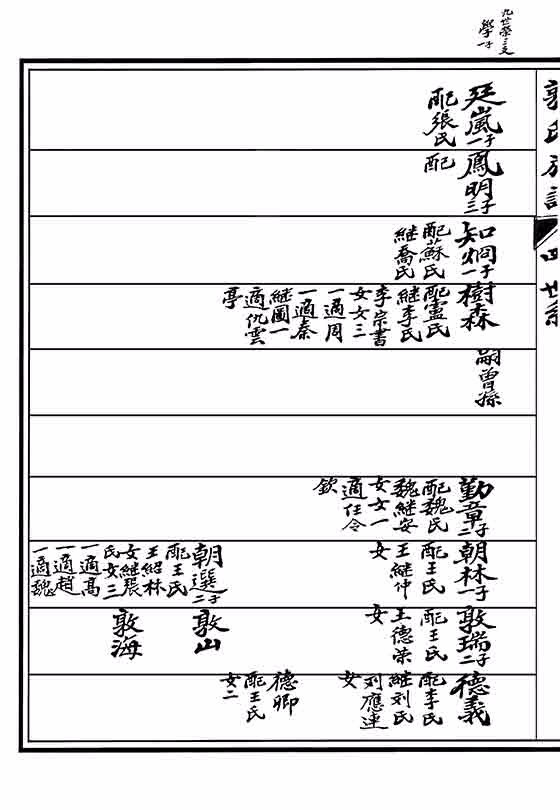 九世榮三支
學一子
廷嵐一子
配張氏
鳳明三子
配
知炯一子
配蘇氏
継喬氏
樹森
配
氏
継李氏
李宗書
女女三
一適周
一適秦
継圖一
適仇雲
亭
嗣曾孫
勤章二子
配魏氏
魏継安
女女一
適任令
欽
朝林一子
配王氏
王継仲
女
朝選二子
配王氏
王紹林
女継張
氏女三
一適高
一適趙
一適魏
敦瑞二子
配王氏
王德荣
女
敦山
敦海
德義
配李氏
継刘氏
刘應連
女
德卿
配王氏
女二